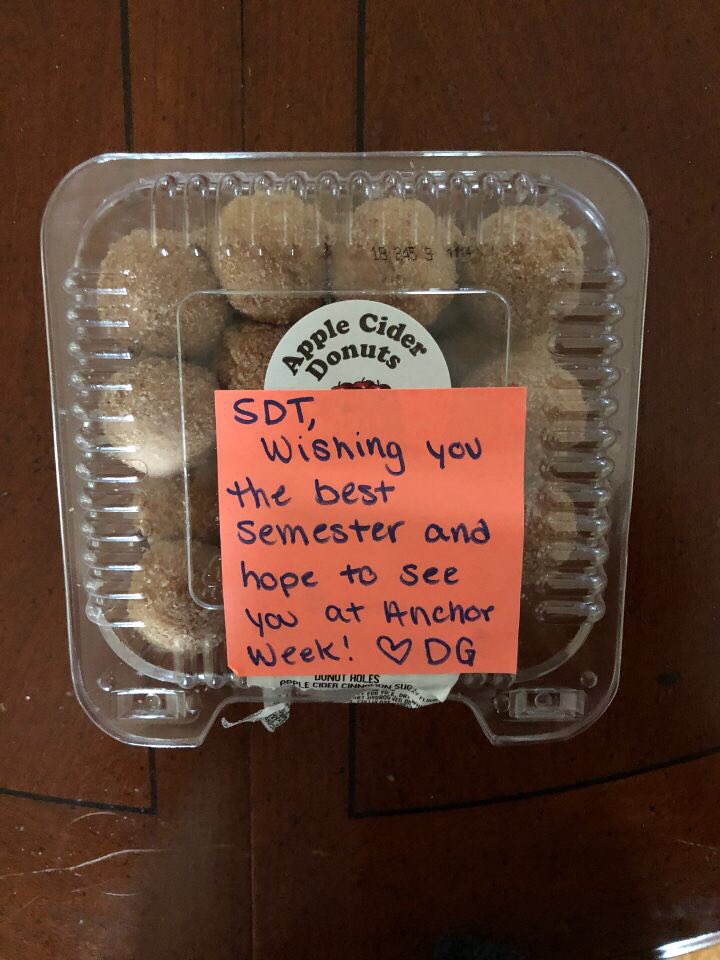 18 245 9
Apple Cider
Donuts
SDT,
Wishing you
the best
semester and
hope to see
you at Anchor
Week! ♡ DG
DONUT HOLES
APPLE CIDER CINNAMON SUGAR